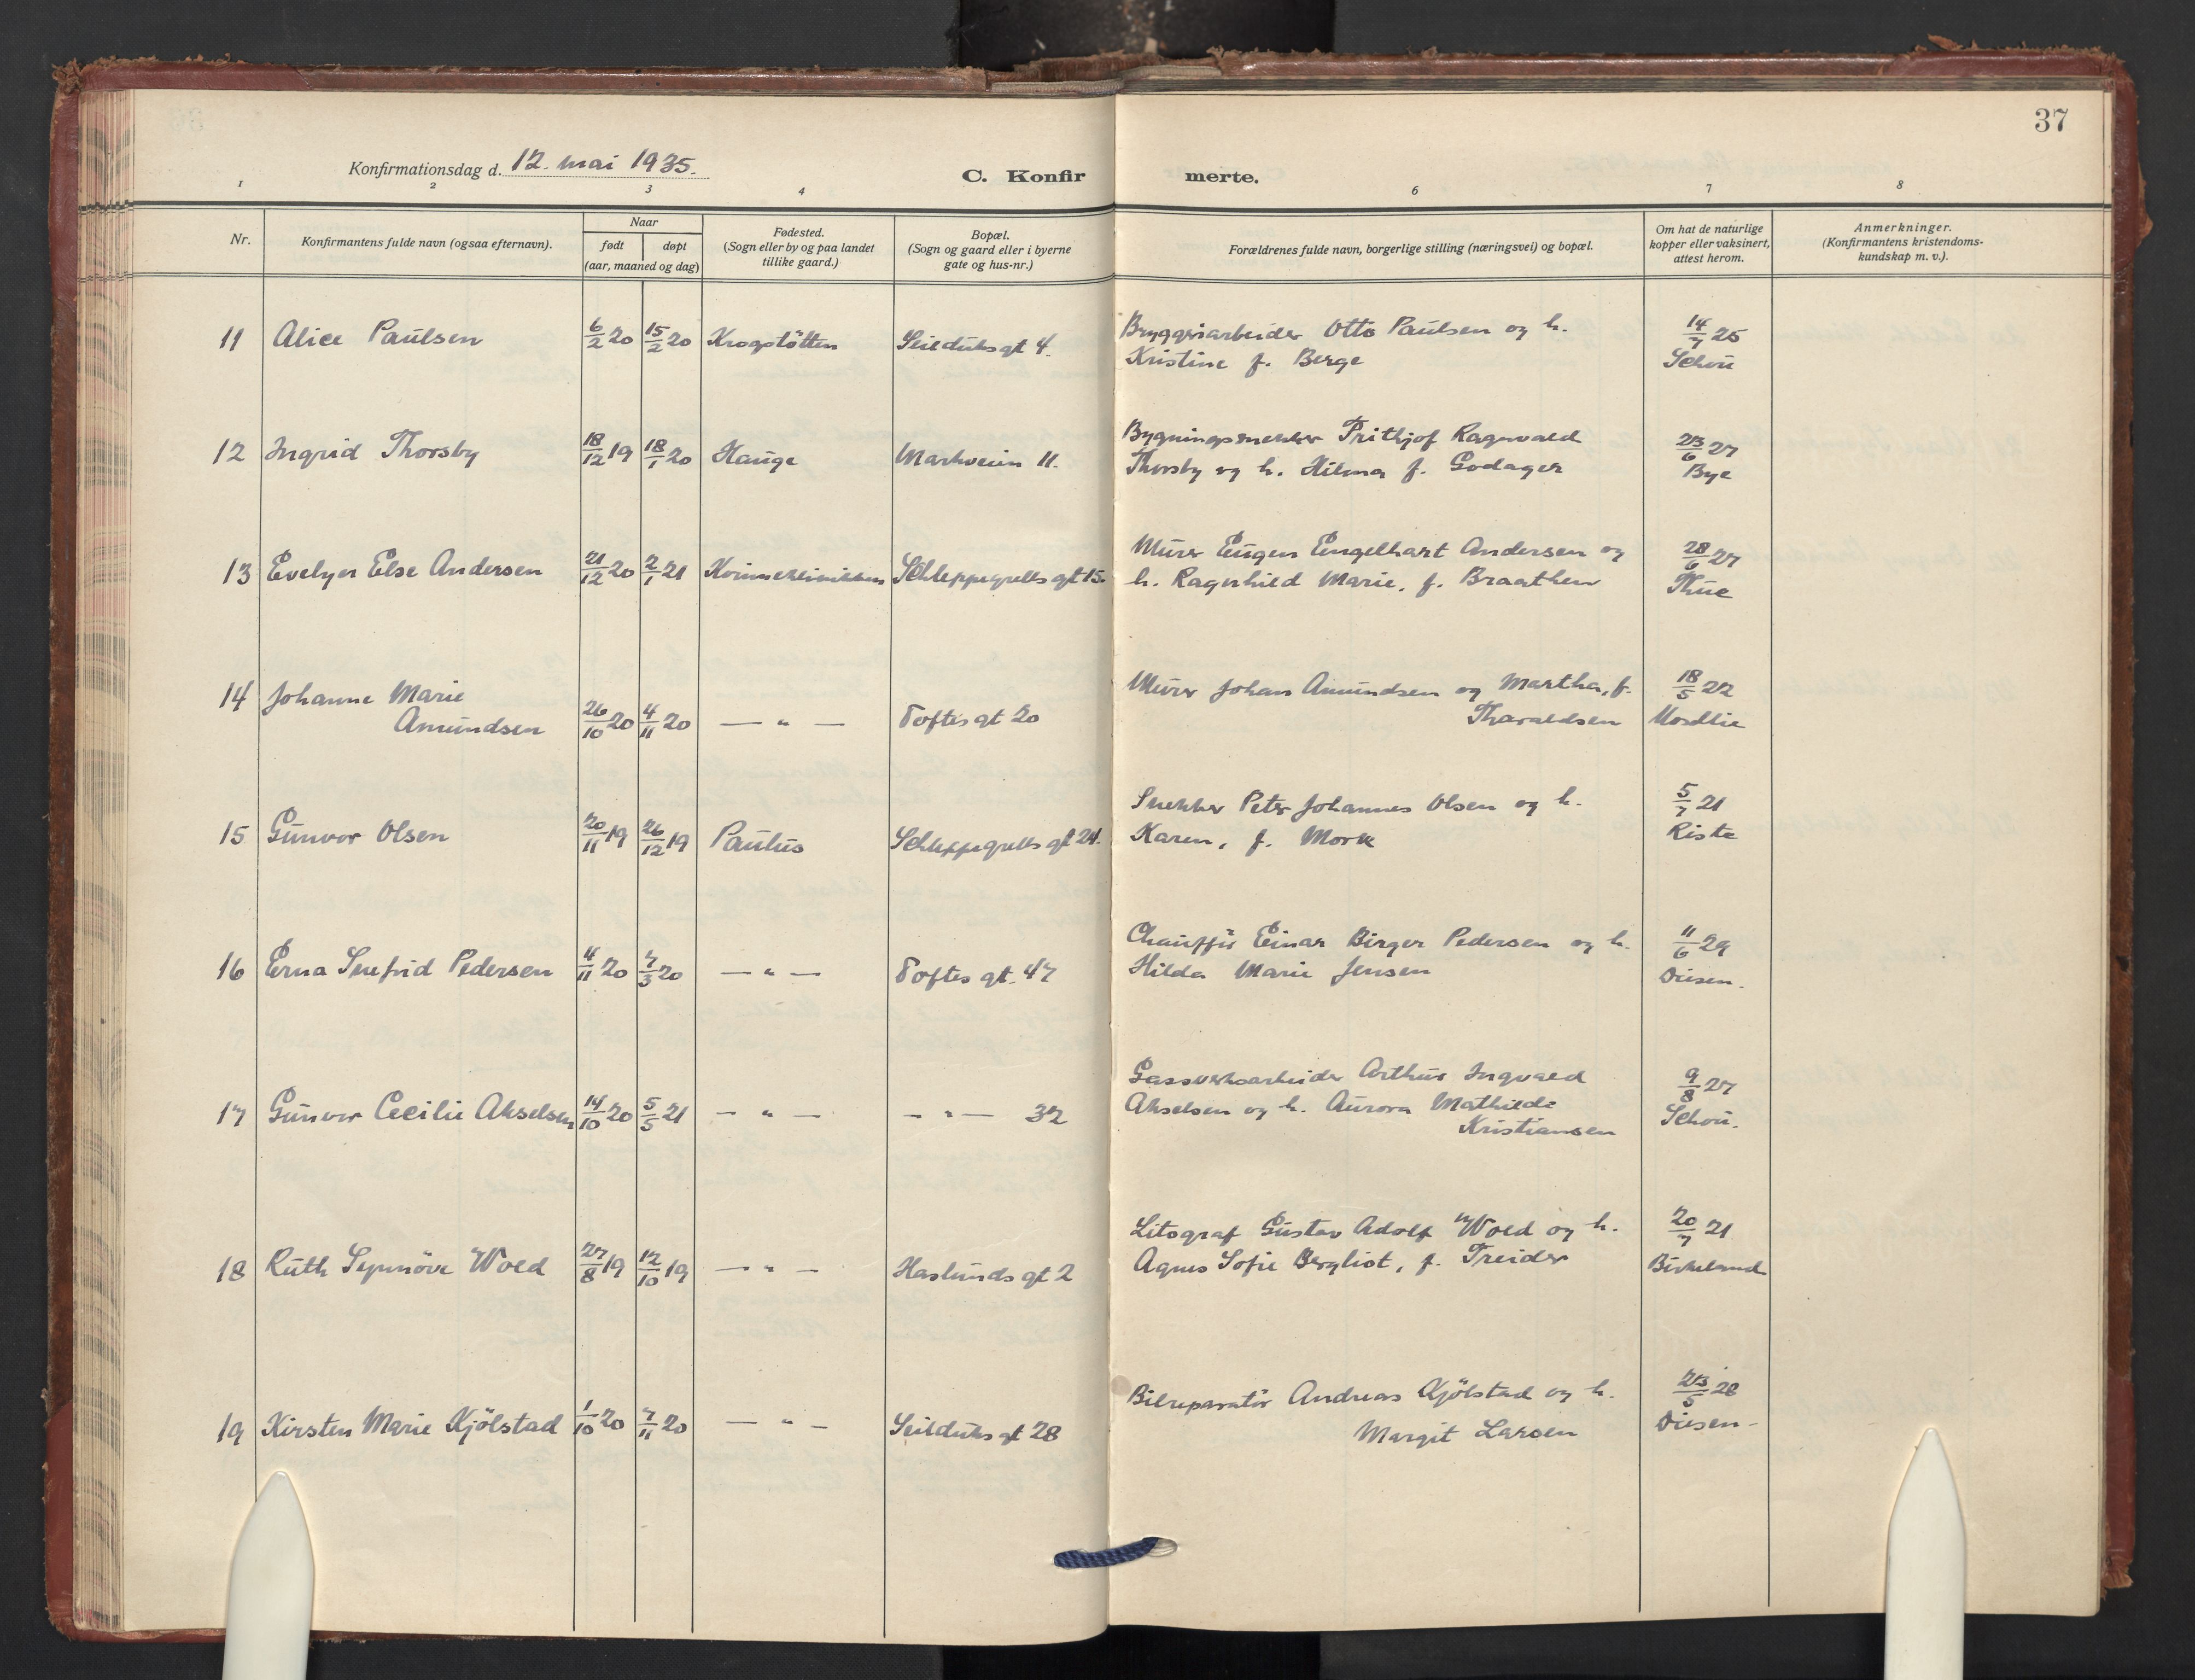 37
Konfirmationsdag d. 12. mai 1935.
C. Konfirmerte.
1 2 3 4 6 7 8
Nr.
Konfirmantens fulde navn (ogsaa efternavn).
Naar
født døpt
(aar, maaned og dag)
Fødested.
(Sogn eller by og paa landet
tillike gaard.)
Bopæl.
(Sogn og gaard eller i byerne
gate og hus-nr.)
Forældrenes fulde navn, borgerlige stilling (næringsvei) og bopæl.
Om hat de naturlige
kopper eller vaksinert,
attest herom.
Anmerkninger.
(Konfirmantens kristendoms-
kundskap m. v.).
11 Alice Paulsen 6/2 20 15/2 20 Krogstötten Seilduksgt 4. Bryggeriarbeider Otto Paulsen og h. 14/7 25
Kristine f. Berge Schou
12 Ingrid Thorsby 18/12 19 18/1 20 Hauge Markveien 11. Bygningssnekker Frithjof Ragnvald 23/6 27
Thorsby og h. Hilma f. Godager Bye
13 Evelyn Else Andersen 21/12 20 2/1 21 Kvinneklinikken Schleppegrells gt 15. Murer Eugen Engelhart Andersen og 28/6 27
h. Ragnhild Marie, f. Braathen Thue
14 Johanne Marie
Amundsen 26/10 20 4/11 20 — " — Toftes gt 20 Murer Johan Amundsen og Martha, f. 18/5 22
Tharaldsen Mordlie
15 Gunvor Olsen 20/11 19 26/12 19 Paulus Schleppegrells gt 24. Snekker Peter Johannes Olsen og h. 5/7 21
Karen, f. Mork Riste
16 Erna Snefrid Pedersen 11/11 20 7/3 20 — " — Toftes gt. 47 Chauffür Einar Birger Pedersen og h. 11/6 29
Hilda Marie Jensen Diesen.
17 Gunvor Cecilie Akselsen 14/10 20 5/5 21 — " — — " — 32 Gassverksarbeider Arthur Ingvald 9/8 27
Akselsen og h. Aurora Mathilde Schou.
Kristiansen
18 Ruth Synnöve Wold 27/8 19 12/10 19 — " — Haslunds gt 2 Litograf Gustav Adolf Wold og h. 20/7 21
Agnes Sofie Bergliot, f. Treider Birkeland
19 Kirsten Marie Kjölstad 1/10 20 7/11 20 — " — Seilduks gt 28 Bilreparatör Andreas Kjölstad og h. 23/5 28
Margit Larsen Diesen -